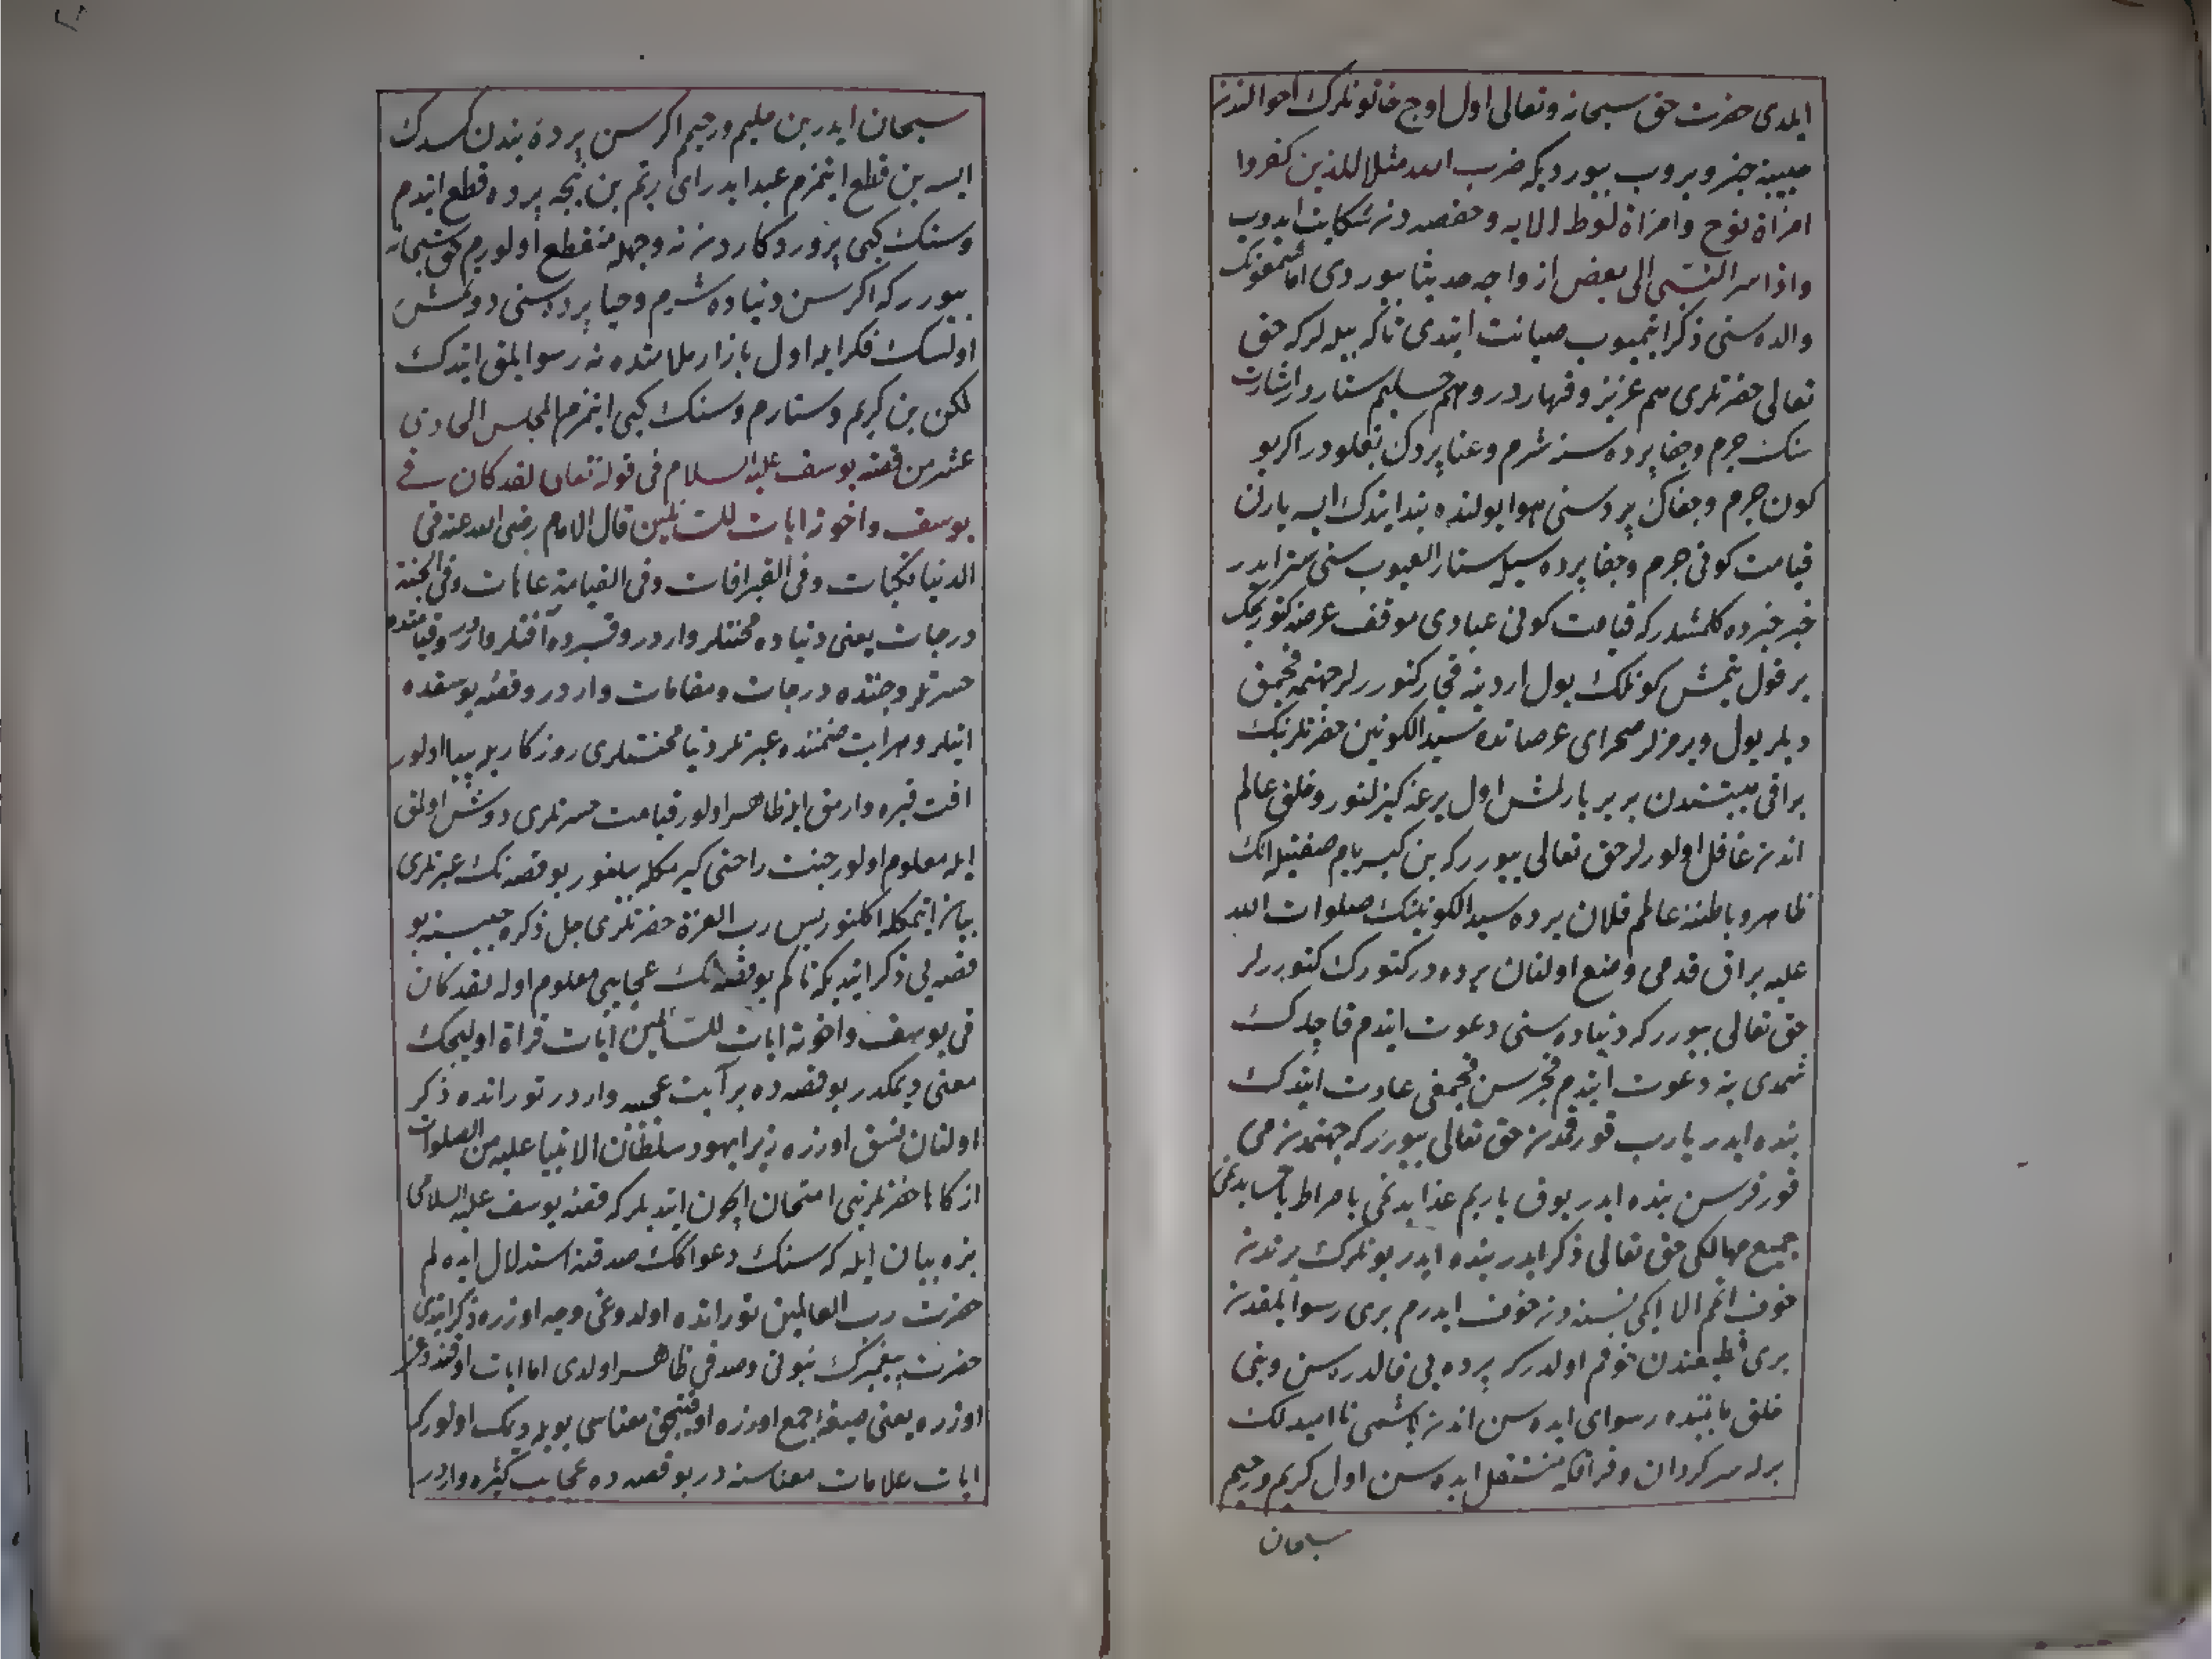 ایلدی حضرت حق سبحانه وتعالی اول اوچ خاتونلرك احوالندن
حبیبنه خبر ویروب بیوردیکه ضرب الله مثلا للذین کفروا
امراة نوح وامراة لوط الایه وحفصه دن شکایت ایدوب
واذا اسر النبی الی بعض ازواجه حدیثا بیوردی اما
والده سنی ذکر ایتمیوب صیانت ایتدی تاکه بیله لرکه حق
تعالی حضرتلری هم عزیز وقهاردر وهم حلیم ستاردر اشارت
سنك جرم وجفا پرده سنه شرم وعنا پردك بغلودر اکر بو
کون جرم وجفاك پرده سنی هوا بولنده بند ایتدك ایسه یارن
قیامت کونی جرم وجفا پرده سیله ستار العیوب سنی ستر ایدر
خبرده کلمشدرکه قیامت کونی عبادی موقف عرضه کتوریجك
بر قول یتمش کونلك یول اردینه قچار کتوررلر جهنمه قچمق
دیلر یول ویرمزلر صحرای عرصاتده سید الکونین حضرتلرینك
براقی هیبتندن بر یر یارلمش اول یره کیزلنور وخلق عالم
اندن غافل اولورلر حق تعالی بیوررکه بن کبریایم صفتیله انك
ظاهر وباطننه عالمم فلان یرده سید الکونینك صلوات الله
علیه براق قدمی وضع اولنان یرده در کتورك کتوررلر
حق تعالی بیوررکه دنیاده سنی دعوت ایتدم قاچدك
شمدی ینه دعوت ایتدم قچرسن قچمغی عادت ایتدك
بنده ایدر یارب قورقمدن حق تعالی بیوررکه جهنمدن می
قورقرسن بنده ایدر یوق یاربم عذابدنمی یا صراط یا حسابدنمی
جمیع مهالکی حق تعالی ذکر ایدر بنده ایدر بونلرك برندن
خوف ایتمم الا ایکی نسنه دن خوف ایدرم بری رسوایلقدن
بری قطیعتدن خوفم اولدرکه پرده یی قالدره سن وبنی
خلق یاننده رسوای ایده سن اندن باشمی ناامیدلك
یرله سرکردان وفراقکه مشتغل ایده سن اول کریم ورحیم
سبحان
سبحان ایدر بن حلیم ورحیم اکر سن پرده بندن کسدك
ایسه بن قطع ایتمزم عبد ایدر ای ربم بن نیجه پرده قطع ایتدم
وسنك کبی پروردکاردن نه وجهله منقطع اولورم حق سبحانه
بیوررکه اکر سن دنیاده شرم وحیا پرده سنی دوتمش
اولسك فکر ایله اول بازار ملامتده نه رسوایلق ایتدك
لکن بن کریم وستارم وسنك کبی ایتمزم المجلس الحادی
عشر من قصه یوسف علیه السلام فی قوله تعالی لقد کان فی
یوسف واخوته ایات للسائلین قال الامام رضی الله عنه فی
الدنیا نکبات وفی القبر افات وفی القیامة عاهات وفی الجنة
درجات یعنی دنیاده محنتلر واردر وقبرده آفتلر واردر وقیامتده
حسرتلر وجنتده درجات ومقامات واردر وقصه یوسفده
ایتلر وهر ایت ضمننده عبرتلر دنیا محنتلری روزکاریله پیدا اولور
افت قبره وارمق ایله ظاهر اولور قیامت حسرتلری دوش اولق
ایله معلوم اولور جنت راحتی کیرمکله بلنور بو قصه نك عبرتلری
بیان ایتمکله اکلنور پس رب العزة حضرتلری جل ذکره حبیبنه بو
قصه یی ذکر ایتدیکه تاکم بو قصه نك عجایبی معلوم اوله لقد کان
فی یوسف واخوته ایات للسائلین ایات قراة اولیجك
معنی دیمکدر بو قصه ده بر آیت عجیبه واردر توراتده ذکر
اولنان نسق اوزره زیرا یهود سلطان الانبیا علیه من الصلوات
ازکاها حضرتلرینی امتحان ایچون ایتدیلرکه قصه یوسف علیه السلامی
بزه بیان ایله که سنك دعواکك صدقنه استدلال ایده لم
حضرت رب العالمین توراتده اولدوغی وجه اوزره ذکر ایتدی
حضرت پیغمبرك نبوتی وصدقی ظاهر اولدی اما ایات اوقندوغی
اوزره یعنی صیغه جمع اوزره اوقنیجق معناسی بویله دیمك اولورکه
ایات علامات معناسنه در بو قصه ده عجایب کثیره واردر